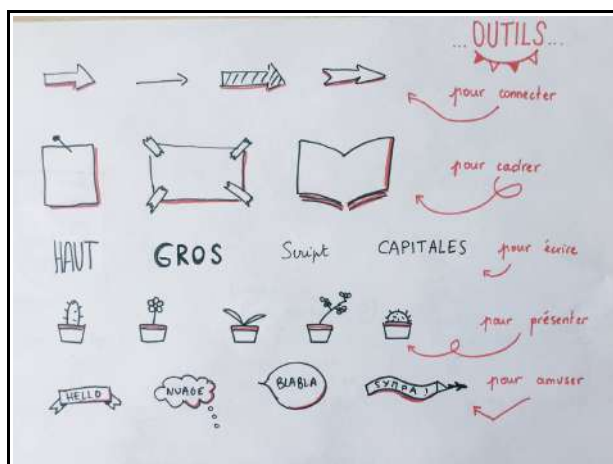 ... OUTILS ...
pour connecter
pour cadrer
HAUT GROS Script CAPITALES pour écrire
pour présenter
HELLO NUAGE BLABLA SYMPA ! pour amuser